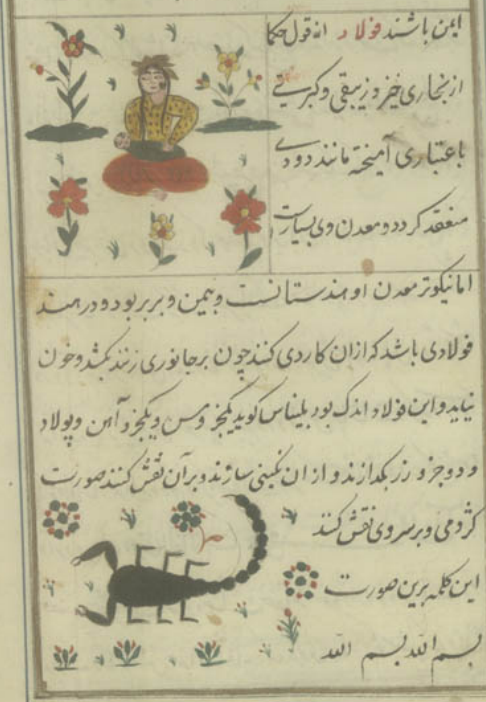 ایمن باشند فولاد انه قول حکما
از بخاری خیزد زیبقی و کبریتی
با عتباری آمیخته مانند دودی
منعقد کردد و معدن وی بسیارست
اما نیکوتر معدن او هندستانست و بیمن و بربر بود و در هند
فولادی باشد که ازان کاردی کنند چون بر جانوری زنند بکشد و خون
نیاید و این فولاد اندک بود بلیناس کوید یکجزو مس و یکجزو آهن و پولاد
و دو جزو زر بکدازند و از ان نکینی سازند و بر آن نقش کنند صورت
کژدمی و بر سر وی نقش کنند
این کلمه برین صورت
بسم الله بسم الله